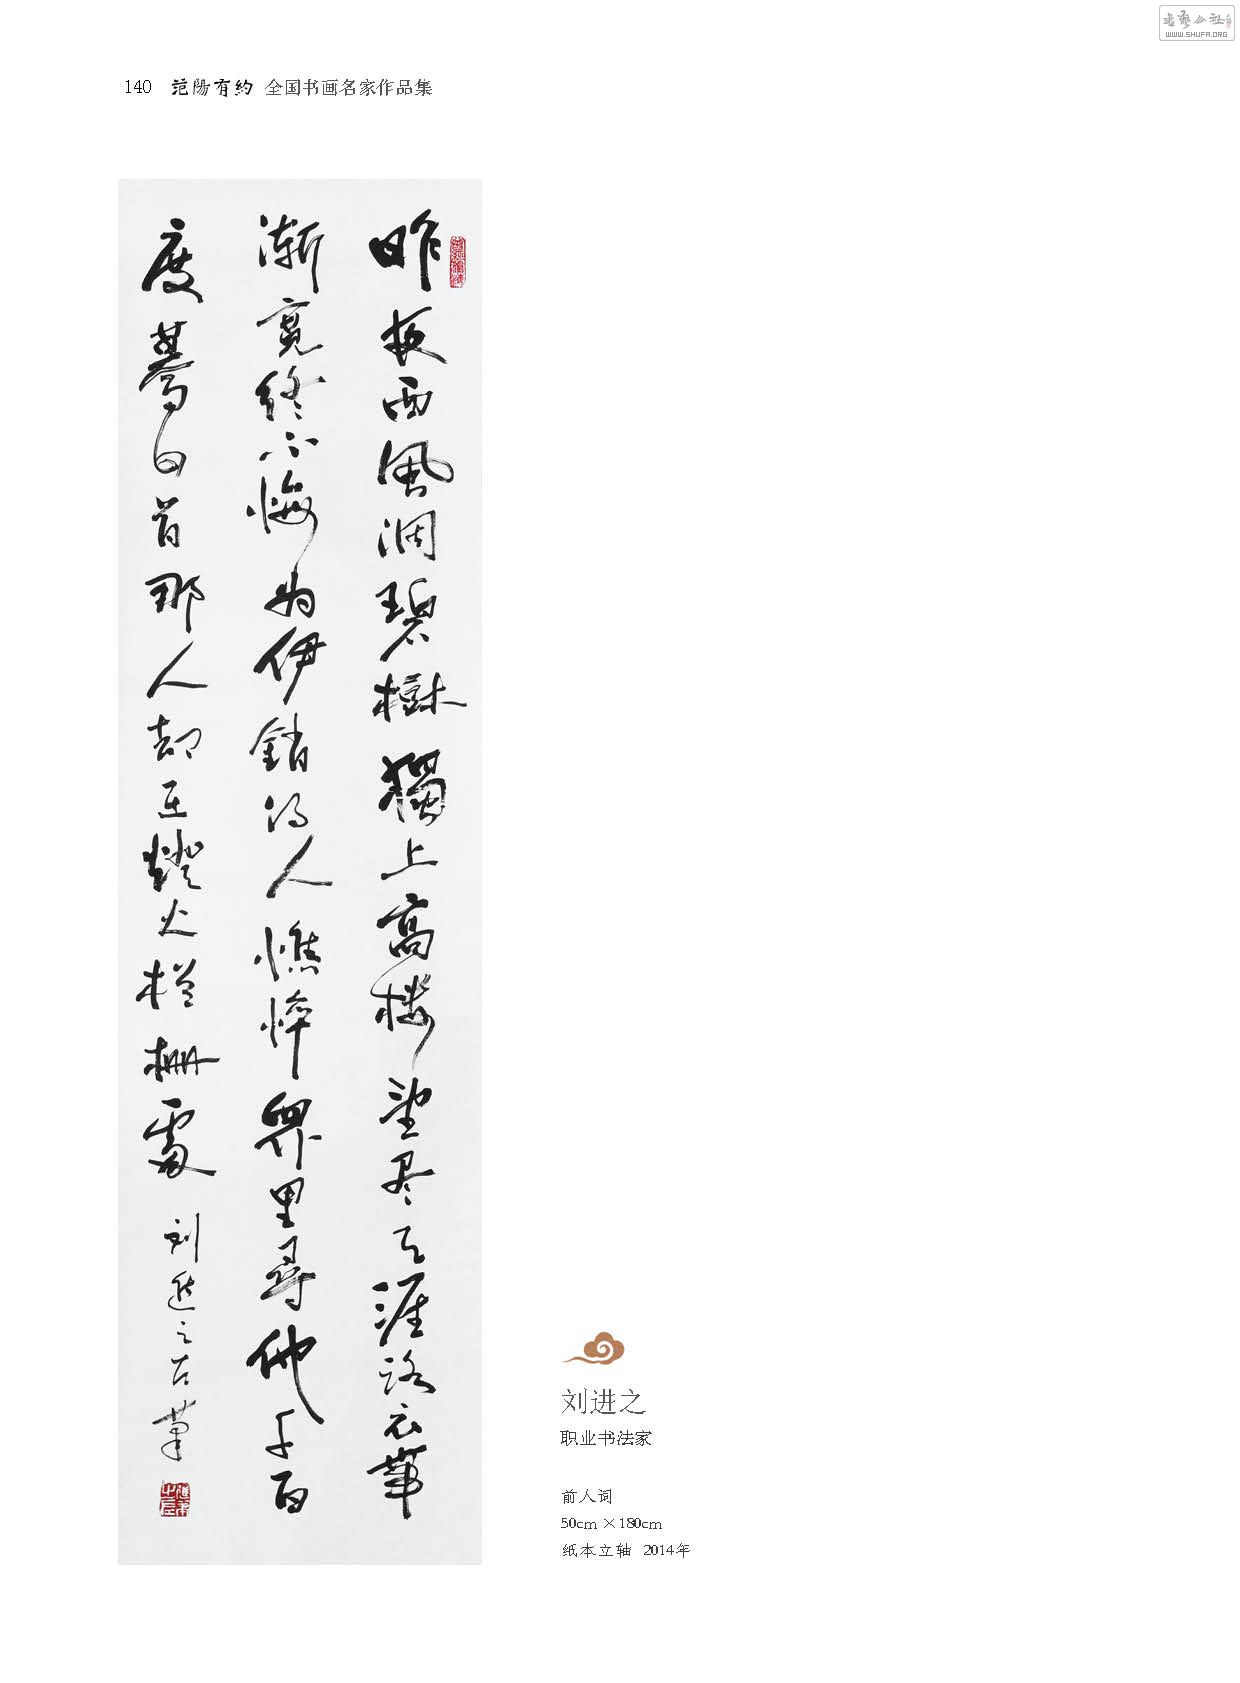 书艺公社
WWW.SHUFA.ORG
140 范陽有約 全国书画名家作品集
昨夜西風凋碧樹獨上高楼望尽天涯路衣帶
漸寬終不悔為伊銷得人憔悴眾里尋他千百
度驀回首那人却在燈火栏栅處 刘進之 筆
刘进之
职业书法家
前人词
50cm×180cm
纸本立轴 2014年